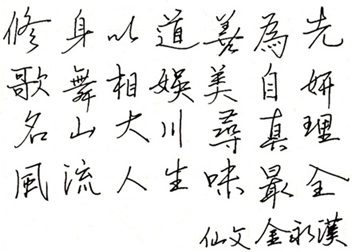 修身以道善為先
歌舞相娛美自妍
名山大川尋真理
風流人生味最全
仙文金永漢